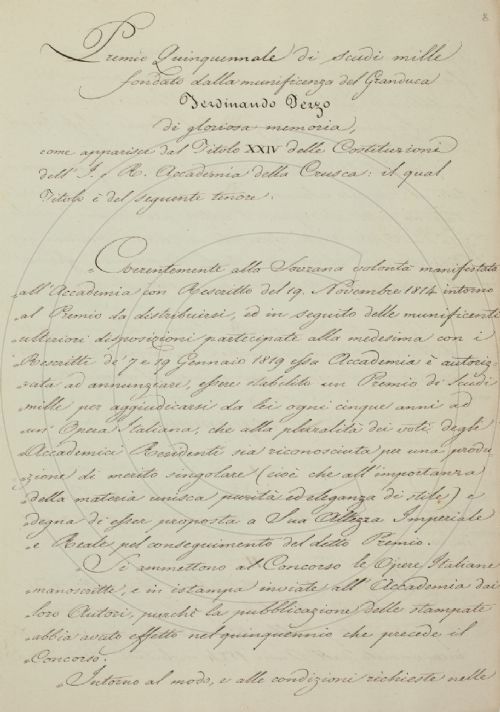 8
Premio Quinquennale di scudi mille
fondato dalla munificenza del Granduca
Ferdinando Terzo
di gloriosa memoria,
come apparisce dal Titolo XXIV delle Costituzioni
dell' I. e R. Accademia della Crusca: il qual
Titolo è del seguente tenore.
„Coerentemente alla Sovrana volontà manifestata
„all'Accademia con Rescritto del 19. Novembre 1814 intorno
„al Premio da distribuirsi, ed in seguito delle munificenti
„ulteriori disposizioni partecipate alla medesima con i
„Rescritti de' 7 e 19 Gennaio 1819 essa Accademia è autoriz-
„zata ad annunziare, essere stabilito un Premio di Scudi
„mille per aggiudicarsi da lei ogni cinque anni ad
„un' Opera Italiana, che alla pluralità dei voti degli
„Accademici Residenti sia riconosciuta per una produ
„zione di merito singolare (cioè che all'importanza
„della materia unisca purità ed eleganza di stile) e
„degna di esser proposta a Sua Altezza Imperiale
„e Reale pel conseguimento del detto Premio.
„Si ammettono al Concorso le Opere Italiane
„manoscritte, e in istampa inviate all'Accademia dai
„loro Autori, purchè la pubblicazione delle stampate
„abbia avuto effetto nel quinquennio che precede il
„Concorso.
„Intorno al modo, e alle condizioni richieste nelle